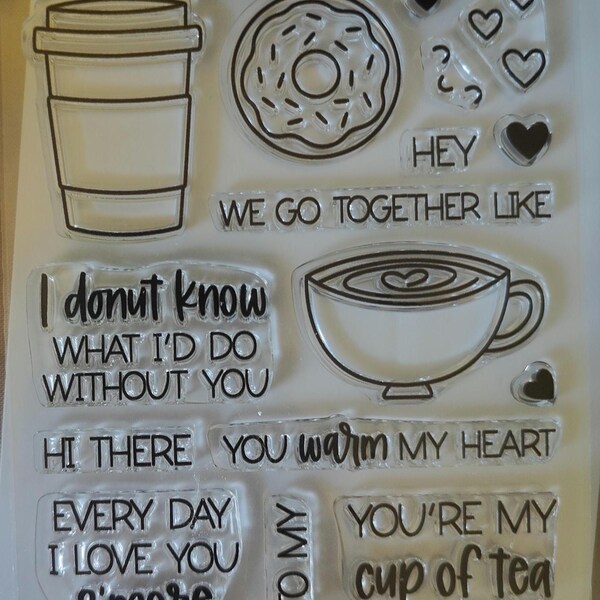 HEY
WE GO TOGETHER LIKE
I donut know
WHAT I'D DO
WITHOUT YOU
HI THERE
YOU warm MY HEART
EVERY DAY
I LOVE YOU
s'more
TO MY
YOU'RE MY
cup of tea